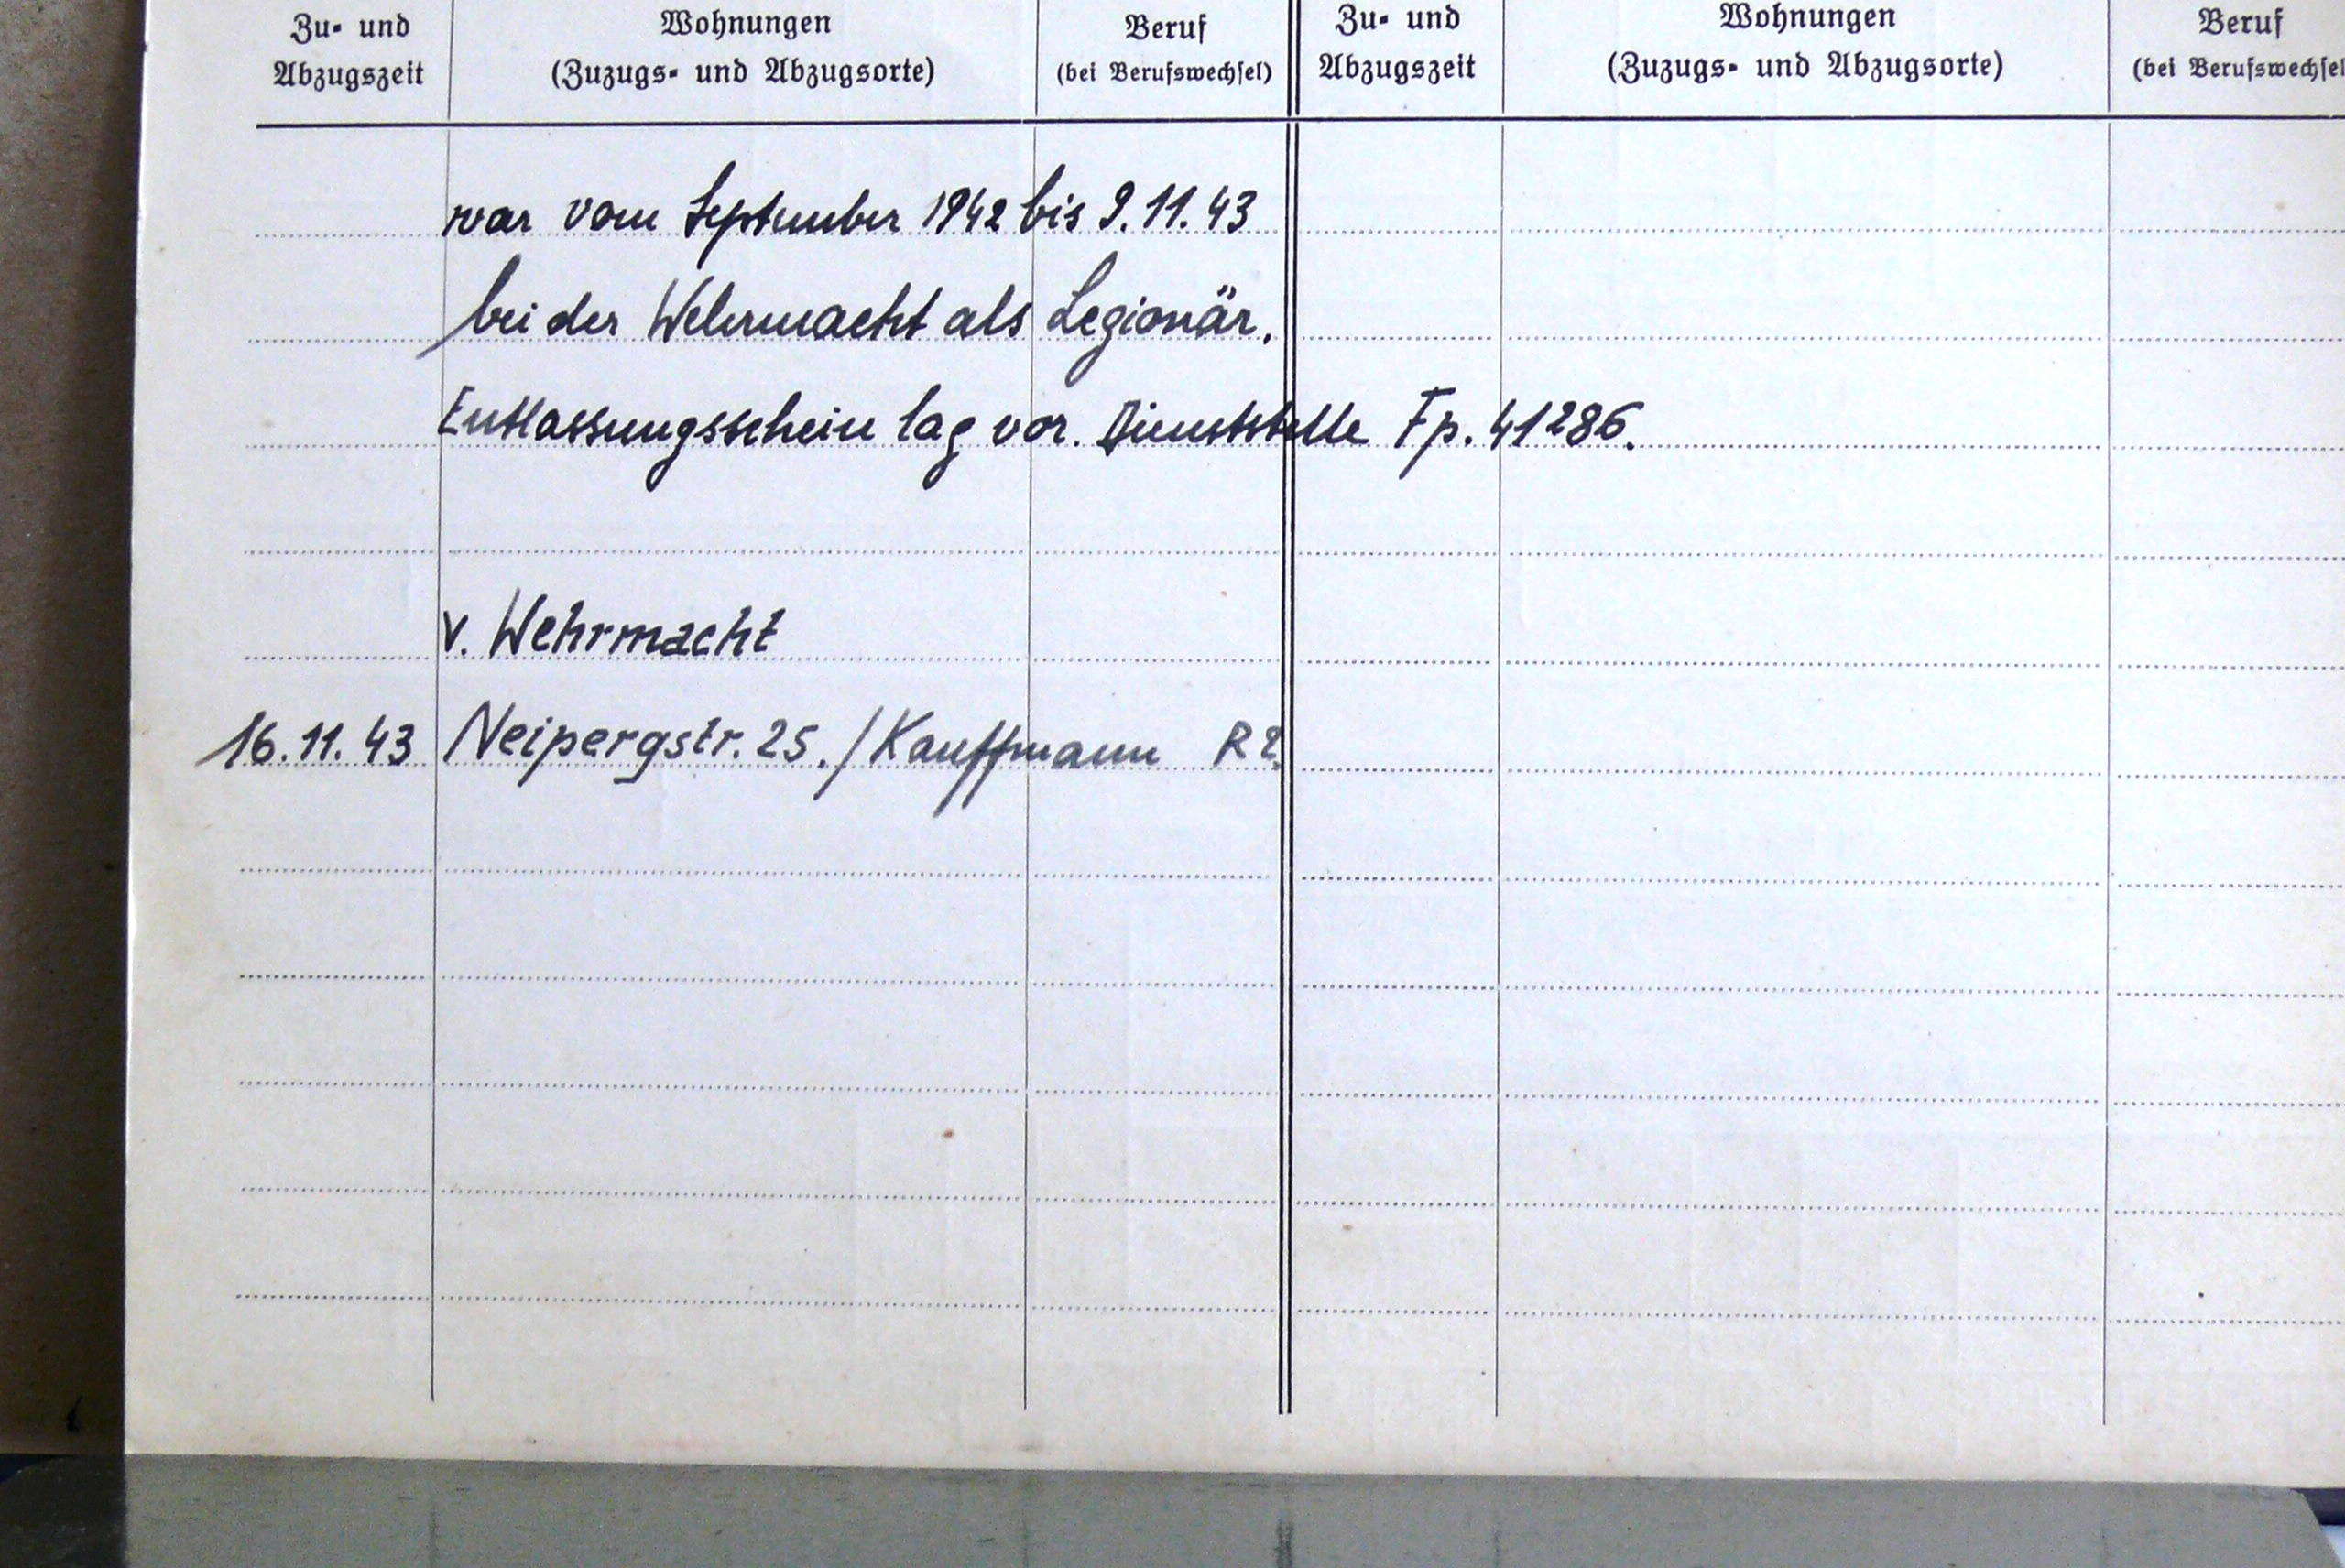 Zu- und Wohnungen Beruf Zu- und Wohnungen Beruf
Abzugszeit (Zuzugs- und Abzugsorte) (bei Berufswechsel) Abzugszeit (Zuzugs- und Abzugsorte) (bei Berufswechsel
war vom September 1942 bis 9.11.43
bei der Wehrmacht als Legionär.
Entlassungsschein lag vor. Dienststelle Fp. 41286.
v. Wehrmacht
16.11.43 Neipergstr. 25. / Kauffmann